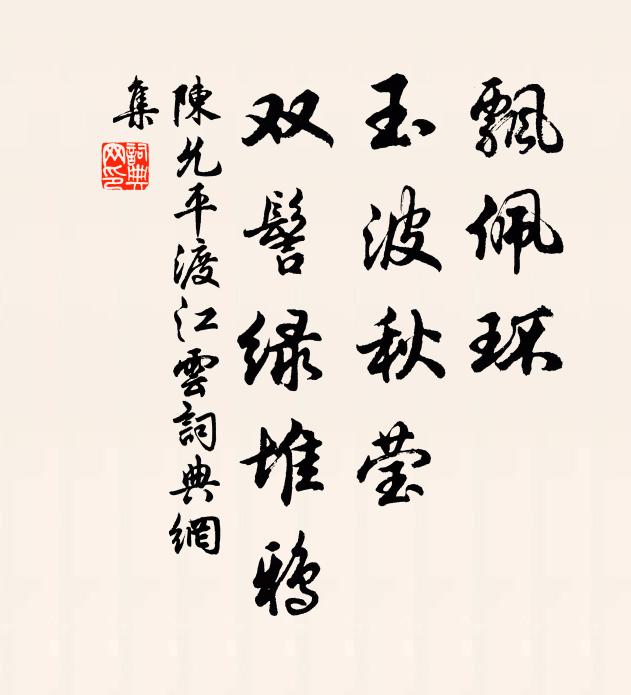 飘佩环
玉波秋莹
双髻绿堆鸦
陳允平渡江雲詞典網
集
詞典
网印